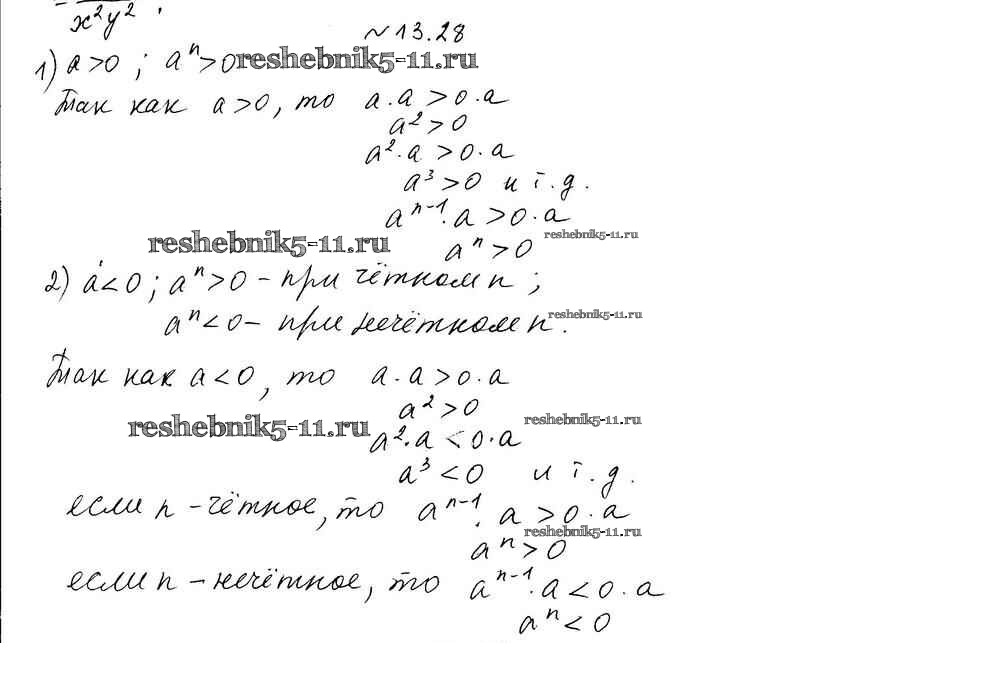 x²y² .
№ 13.28
1) a>0 ; aⁿ>0 reshebnik5-11.ru
Так как a>0, то a·a>0·a
a²>0
a²·a>0·a
a³>0 и т.д.
aⁿ⁻¹·a>0·a
reshebnik5-11.ru aⁿ>0 reshebnik5-11.ru
2) a<0 ; aⁿ>0 – при чётном n ;
aⁿ<0 – при нечётном n . reshebnik5-11.ru
Так как a<0, то a·a>0·a
a²>0 reshebnik5-11.ru
reshebnik5-11.ru a²·a<0·a
a³<0 и т.д.
если n – чётное, то aⁿ⁻¹·a>0·a
reshebnik5-11.ru
aⁿ>0
если n – нечётное, то aⁿ⁻¹·a<0·a
aⁿ<0